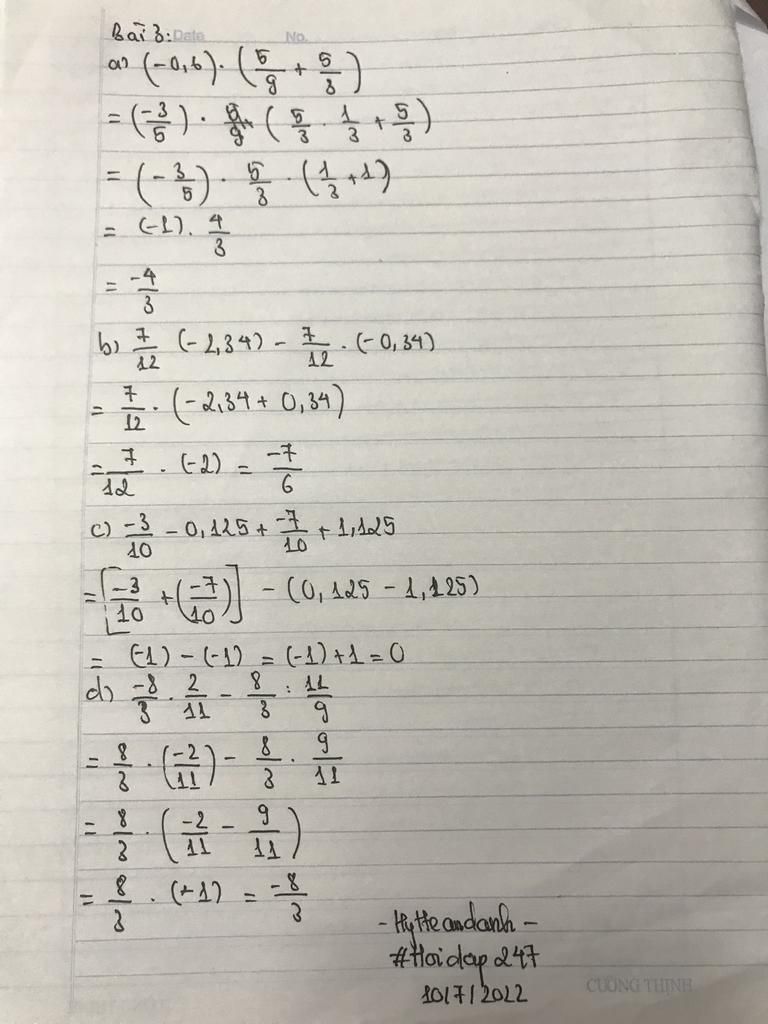 Bài 3: Date No.
a) (-0,6) · (5/9 + 5/3)
= (-3/5) · (5/3 · 1/3 + 5/3)
= (-3/5) · 5/3 · (1/3 + 1)
= (-1) · 4/3
= -4/3
b) 7/12 (-2,34) - 7/12 · (-0,34)
= 7/12 · (-2,34 + 0,34)
= 7/12 · (-2) = -7/6
c) -3/10 - 0,125 + -7/10 + 1,125
= [-3/10 + (-7/10)] - (0,125 - 1,125)
= (-1) - (-1) = (-1) + 1 = 0
d) -8/3 · 2/11 - 8/3 : 11/9
= 8/3 · (-2/11) - 8/3 · 9/11
= 8/3 · (-2/11 - 9/11)
= 8/3 · (-1) = -8/3
- HyHeandanh -
#Hoidap247
10/7/2022
CUONG THINH